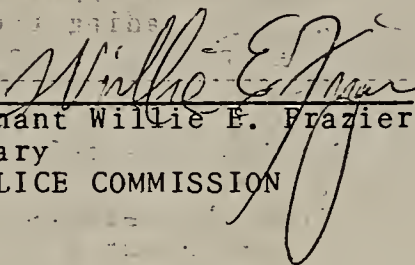 Willie E. Frazier
nant Willie E. Frazier
ary
LICE COMMISSION